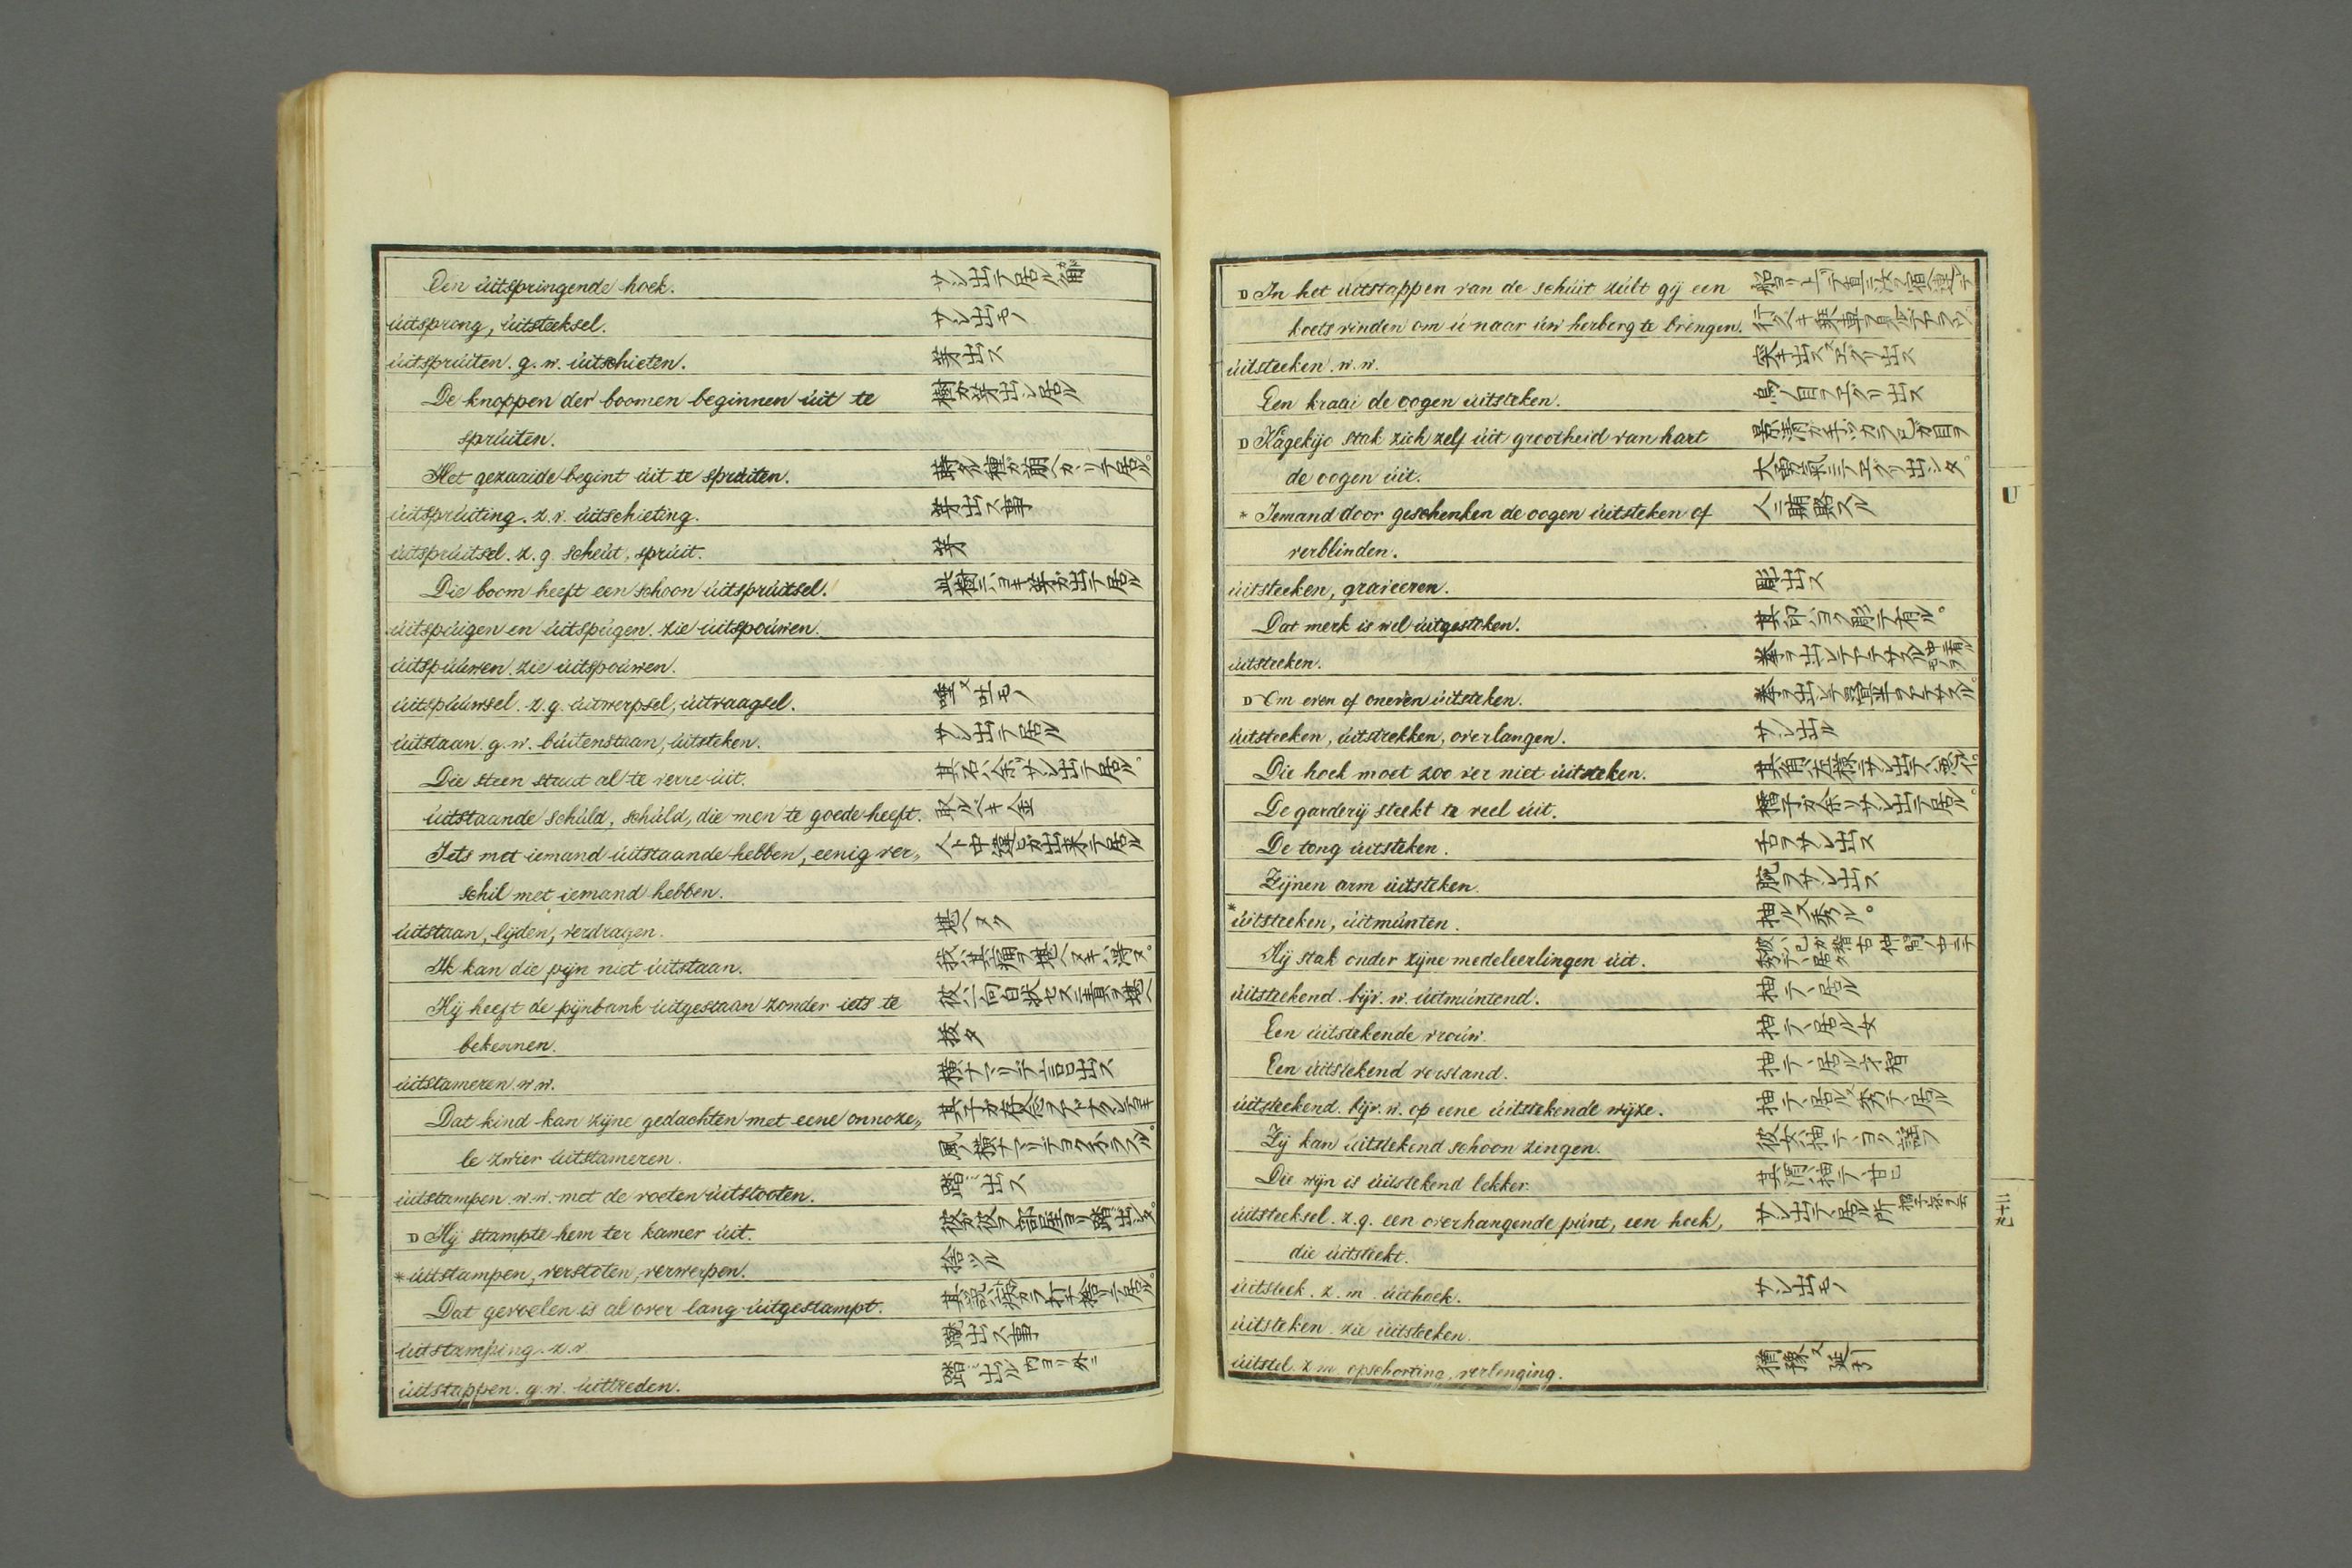 Een úitspringende hoek. サシ出テ居ル角
úitsprong, úitsteeksel. サシ出モノ
úitsprúiten. g. w. úitschieten. 芽出ス
De knoppen der boomen beginnen úit te 樹ガ芽出シ居ル
sprúiten.
Het gezaaide begint úit te sprúiten.
úitsprúiting. z. v. úitschieting. 芽出ス事
úitsprúitsel. z. g. scheút, sprúit. 芽
Die boom heeft een schoon úitsprúitsel. 此樹ニハヨキ芽ガ出テ居ル
úitspúigen en úitspúgen. zie úitspoúwen.
úitspúúwen. zie úitspoúwen.
úitspúúwsel. z. g. úitwerpsel, úitraagsel. 唾又吐モノ
úitstaan. g. w. búitenstaan, úitsteken. サシ出テ居ル
Die steen staat al te verre úit. 其石ハ余リサシ出テ居ル。
úitstaande schúld, schúld, die men te goede heeft. 取ルベキ金
Iets met iemand úitstaande hebben, eenig ver„ 人ト中違ヒガ出来テ居ル
schil met iemand hebben.
úitstaan, lijden, verdragen. 堪ヘヌク
Ik kan die pijn niet úitstaan. 我ハ其痛ヲ堪ヘヌキハ得ヌ。
Hij heeft de pijnbank úitgestaan zonder iets te 彼ハ一向白状セズニ責ヲ堪ヘ
bekennen. 抜タ
úitstameren w. w. 横ナマリデ言出ス
Dat kind kan zijne gedachten met eene onnoze„
le zwier úitstameren.
úitstampen. w. w. met de voeten úitstooten. 踏ミ出ス
D Hij stampte hem ter kamer úit. 彼ガ彼ヲ部屋ヨリ踏出シタ。
* úitstampen, verstoten, verwerpen. 捨ツル
Dat gevoelen is al over lang úitgestampt.
úitstamping. z. v. 蹴出ス事
úitstappen. g. w. úittreden. 踏ミ出ル内ヨリ外ニ
D In het úitstappen van de schúit zúlt gij een
koets vinden om ú naar úw herberg te brengen.
úitsteeken. w. w. 突キ出ス又エグリ出ス
Een kraai de oogen úitsteken. 烏ノ目ヲエグリ出ス
D Kagekijo stak zich zelf úit grootheid van hart 景清ガ手ヅカラ己ガ目ヲ
de oogen úit. 大勇氣ニテエグリ出シタ。
* Iemand door geschenken de oogen úitsteken of 人ニ賄賂スル
verblinden.
úitsteeken, graveeren. 彫出ス
Dat merk is wel úitgestoken. 其印ハヨク彫テ有ル。
úitsteeken.
D Om even of oneven úitsteken.
úitsteeken, úitstrekken, overlangen. サシ出ル
Die hoek moet zoo ver niet úitsteken.
De garderij steekt te veel úit.
De tong úitsteken. 舌ヲサシ出ス
Zijnen arm úitsteken. 腕ヲサシ出ス
* úitsteeken, úitmúnten. 抽ル又秀ル。
Hij stak onder zijne medeleerlingen úit.
úitstekend. bijv. w. úitmúntend. 抽テ居ル
Een úitstekende vroúw. 抽テ居ル女
Een úitstekend verstand. 抽テ居ル才智
úitsteekend. bijv. w. op eene úitstekende wijze. 抽テ居ル又秀テ居ル
Zij kan úitstekend schoon zingen. 彼女ハ抽テヨク謡フ
Die wijn is úitstekend lekker. 其酒ハ抽テ甘シ
úitsteeksel. z. g. een overhangende púnt, een hoek, サシ出テ居ル所
die úitsteekt.
úitsteek. z. m. úithoek. サシ出モノ
úitsteken. zie úitsteeken.
úitstel. z. m. opschorting, verlenging. 猶豫又延引
U
二十九